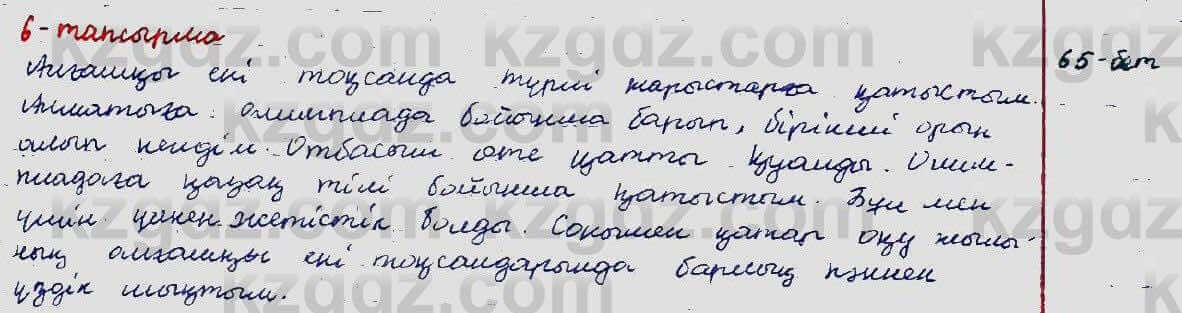 6-тапсырма
Алғашқы екі тоқсанда түрлі жарыстарға қатыстым.
65-бет
Алматыға олимпиада бойынша барып, бірінші орын
алып келдім. Отбасым өте қатты қуанды. Олим-
пиадаға қазақ тілі бойынша қатыстым. Бұл мен
үшін үлкен жетістік болды. Сонымен қатар оқу жылы-
ның алғашқы екі тоқсандарында барлық пәннен
үздік шықтым.
kzgdz.com kzgdz.com kzgdz
kzgdz.com kzgdz.com k
kzgdz.com kzgdz.com kzgdz
kzgdz.com kzgdz.com k